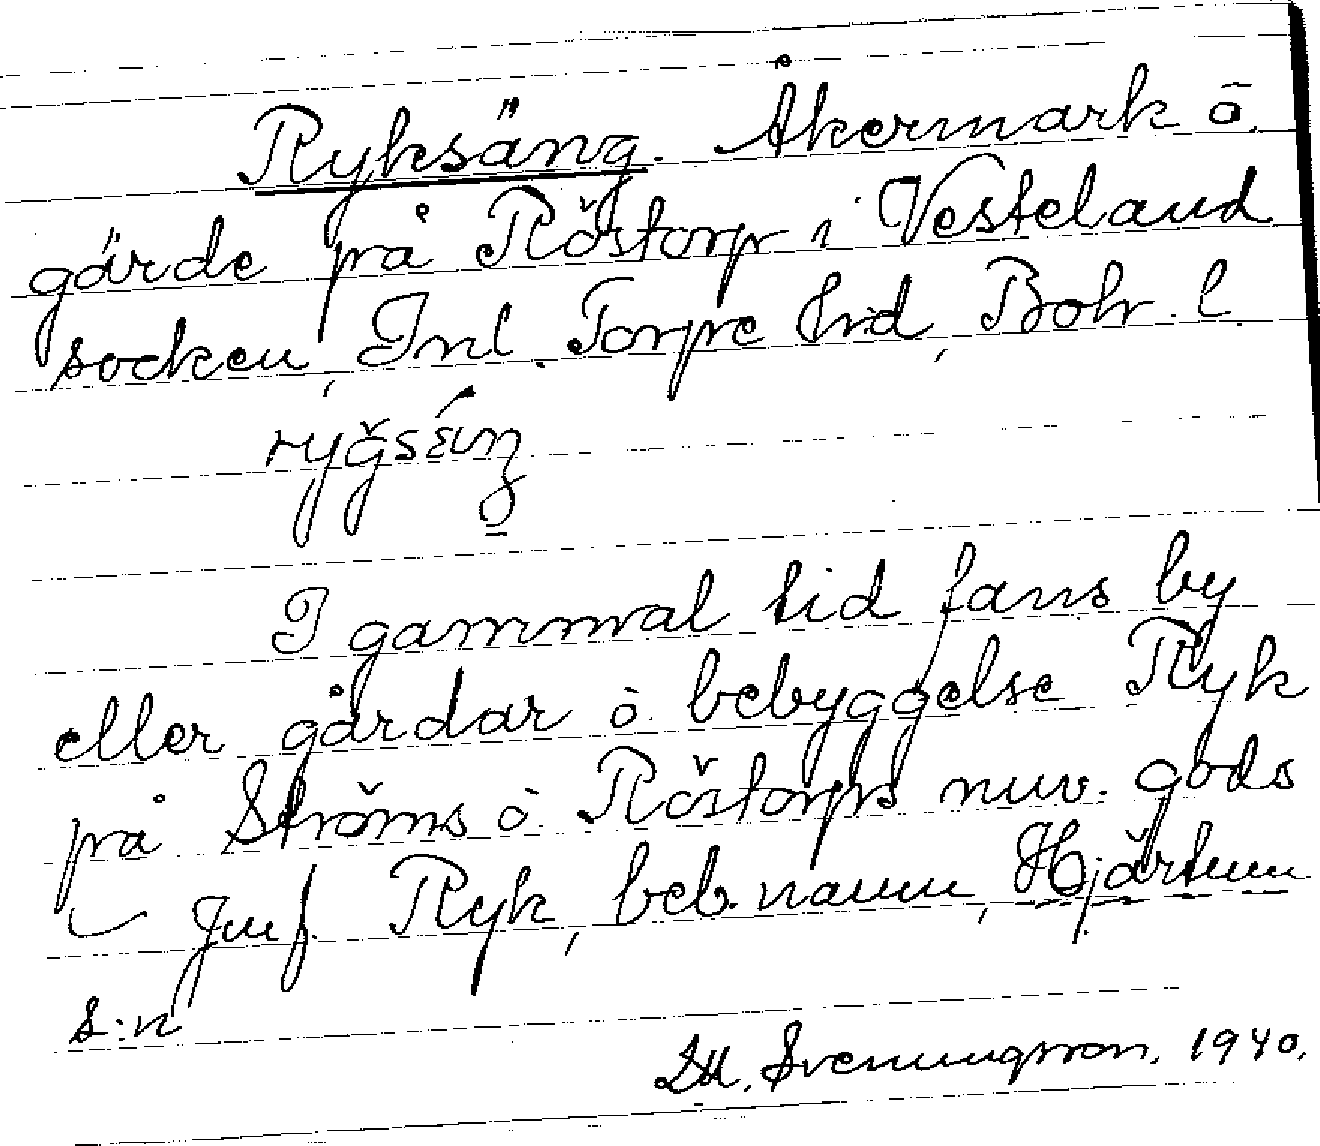 Ryksäng. Åkermark o.
gärde på Röstorp i Vesteland
socken, Inl. Torpe hrd, Boh. l
I gammal tid fans by
eller gårdar o bebyggelse Ryk
på Ströms o Röstorps nuv. gods
Jmf. Ryk, beb. namn, Hjärtum
s:n
Svenungsson. 1940.